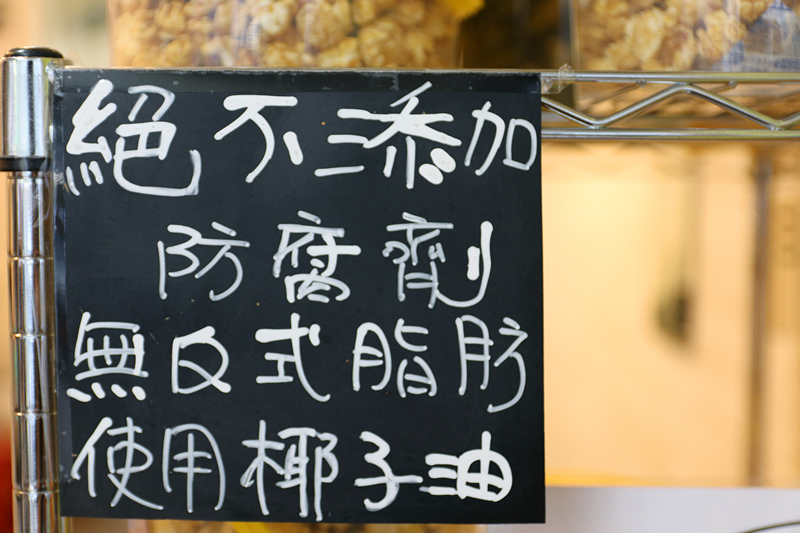 絕不添加
防腐劑
無反式脂肪
使用椰子油